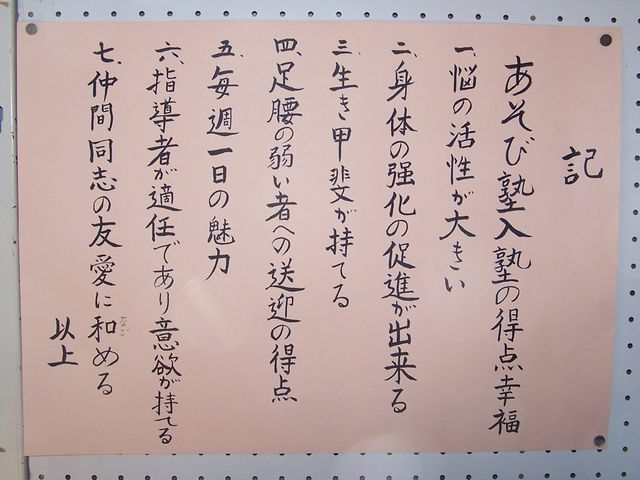 記
あそび塾入塾の得点幸福
一、悩の活性が大きい
二、身体の強化の促進が出来る
三、生き甲斐が持てる
四、足腰の弱い者への送迎の得点
五、毎週一日の魅力
六、指導者が適任であり意欲が持てる
七、仲間同志の友愛に和める
以上